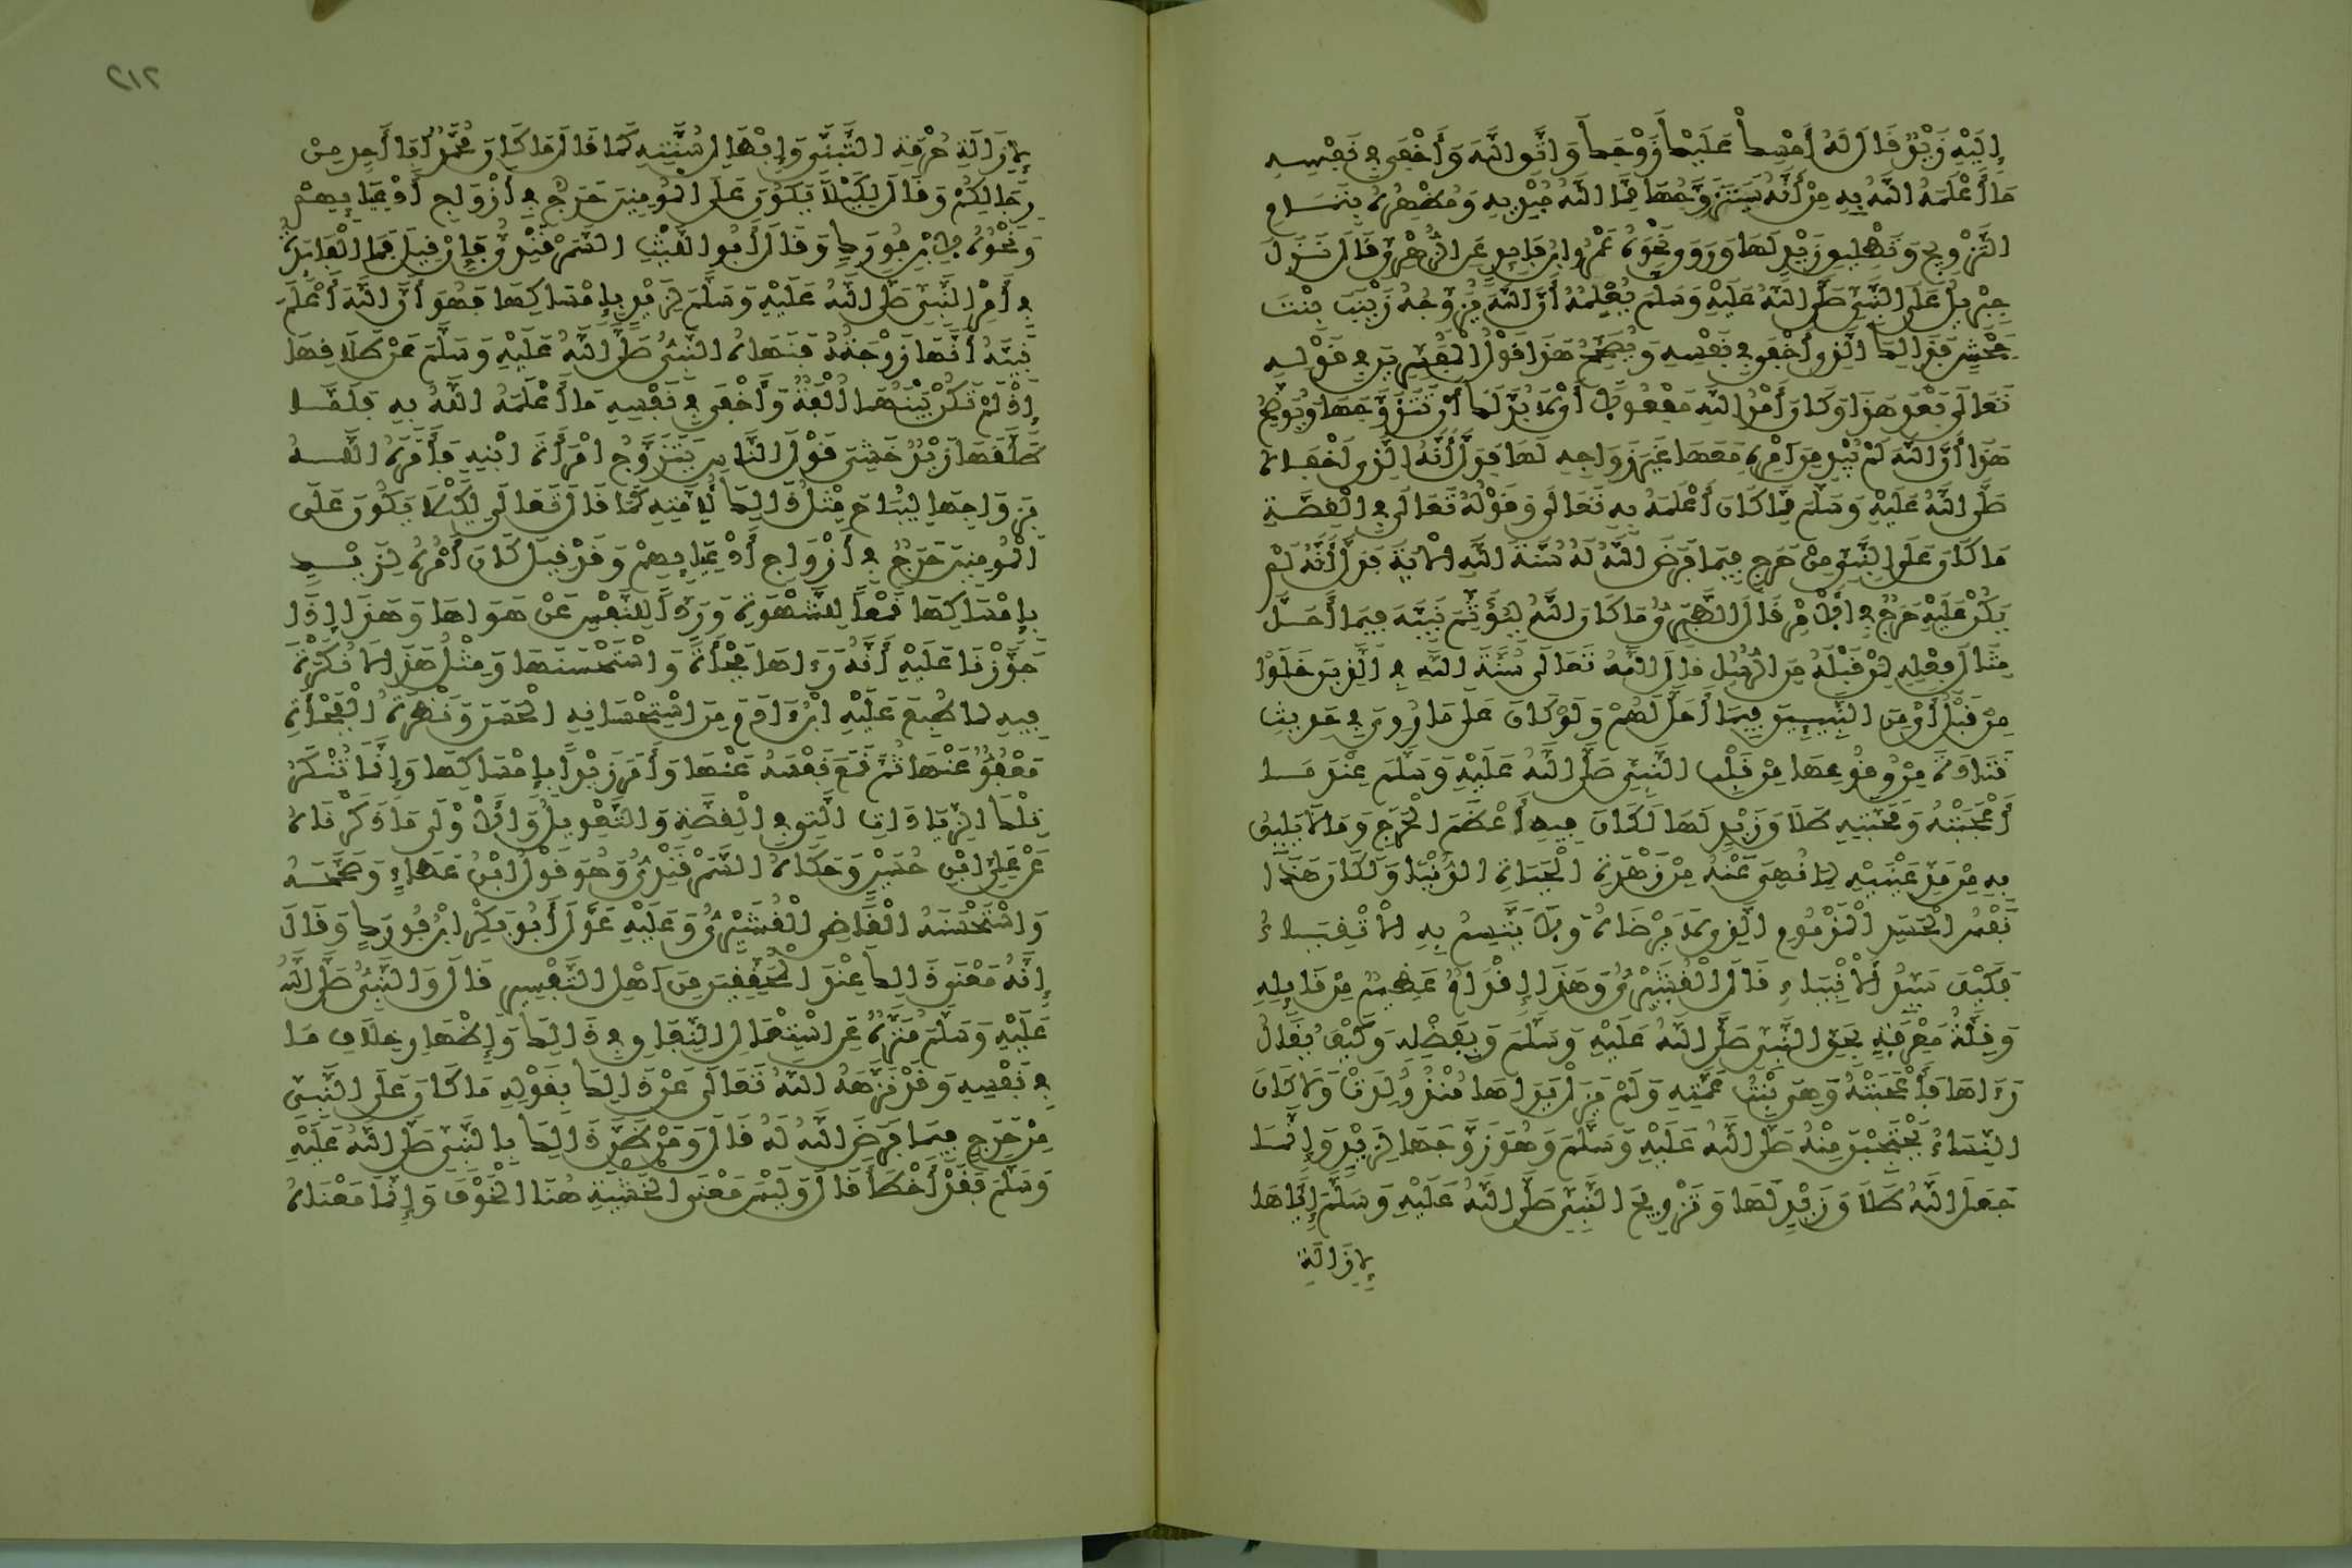 إِلَيْهِ زَيْدٌ قَالَ لَهُ أَمْسِكْ عَلَيْكَ زَوْجَكَ وَاتَّقِ اللَّهَ وَأَخْفَى فِي نَفْسِهِ
مَا أَعْلَمَهُ اللَّهُ بِهِ مِنْ أَنَّهُ سَيَتَزَوَّجُهَا مِمَّا اللَّهُ مُبْدِيهِ وَمُظْهِرُهُ بِتَمَامِ
التَّزْوِيجِ وَتَطْلِيقِ زَيْدٍ لَهَا وَرَوَى نَحْوَهُ عَمْرُو ابْنُ فَايِدٍ عَنِ الزُّهْرِيِّ قَالَ نَزَلَ
جِبْرِيلُ عَلَى النَّبِيِّ صَلَّى اللَّهُ عَلَيْهِ وَسَلَّمَ يُعْلِمُهُ أَنَّ اللَّهَ يُزَوِّجُهُ زَيْنَبَ بِنْتَ
جَحْشٍ فَذَالِكَ الَّذِي أَخْفَى فِي نَفْسِهِ وَيُصَحِّحُ هَذَا قَوْلُ الْمُفَسِّرِينَ فِي قَوْلِهِ
تَعَالَى بَعْدَ هَذَا وَكَانَ أَمْرُ اللَّهِ مَفْعُولًا أَيْ لَا بُدَّ لَكَ أَنْ تَتَزَوَّجَهَا وَيُوَضِّحُ
هَذَا أَنَّ اللَّهَ لَمْ يُبْدِ مِنْ أَمْرِهِ مَعَهَا غَيْرَ زَوَاجِهِ لَهَا فَدَلَّ أَنَّهُ الَّذِي أَخْفَاهُ
صَلَّى اللَّهُ عَلَيْهِ وَسَلَّمَ مِمَّا كَانَ أَعْلَمَهُ بِهِ تَعَالَى وَقَوْلُهُ تَعَالَى فِي الْقِصَّةِ
مَا كَانَ عَلَى النَّبِيِّ مِنْ حَرَجٍ فِيمَا فَرَضَ اللَّهُ لَهُ سُنَّةَ اللَّهِ الْآيَةَ فَدَلَّ أَنَّهُ لَمْ
يَكُنْ عَلَيْهِ حَرَجٌ فِي الْأَمْرِ قَالَ الطَّبَرِيُّ مَا كَانَ اللَّهُ لِيُؤَثِّمَ نَبِيَّهُ فِيمَا أَحَلَّ
مِثَالَ فِعْلِهِ لِمَنْ قَبْلَهُ مِنَ الرُّسُلِ قَالَ اللَّهُ تَعَالَى سُنَّةَ اللَّهِ فِي الَّذِينَ خَلَوْا
مِنْ قَبْلُ أَيْ مِنَ النَّبِيِّينَ فِيمَا أَحَلَّ لَهُمْ وَلَوْ كَانَ عَلَى مَا رُوِيَ فِي حَدِيثِ
قَتَادَةَ مِنْ وُقُوعِهَا مِنْ قَلْبِ النَّبِيِّ صَلَّى اللَّهُ عَلَيْهِ وَسَلَّمَ عِنْدَ مَا
أَعْجَبَتْهُ وَمَحَبَّتِهِ طَلَاقَ زَيْدٍ لَهَا لَكَانَ فِيهِ أَعْظَمُ الْحَرَجِ وَمَا لَا يَلِيقُ
بِهِ مِنْ مَدِّ عَيْنَيْهِ لِمَا نُهِيَ عَنْهُ مِنْ زَهْرَةِ الْحَيَاةِ الدُّنْيَا وَلَكَانَ هَذَا
نَفْسُ الْحَسَدِ الْمَذْمُومِ الَّذِي لَا يَرْضَاهُ وَلَا يَتَّسِمُ بِهِ الْأَتْقِيَاءُ
فَكَيْفَ سَيِّدُ الْأَنْبِيَاءِ قَالَ الْقُشَيْرِيُّ وَهَذَا إِقْدَامٌ عَظِيمٌ مِنْ قَايِلِهِ
وَقِلَّةُ مَعْرِفَةٍ بِحَقِّ النَّبِيِّ صَلَّى اللَّهُ عَلَيْهِ وَسَلَّمَ وَبِفَضْلِهِ وَكَيْفَ يُقَالُ
رَءَاهَا فَأَعْجَبَتْهُ وَهِيَ بِنْتُ عَمَّتِهِ وَلَمْ يَزَلْ يَرَاهَا مُنْذُ وُلِدَتْ وَلَا كَانَ
النِّسَاءُ يَحْتَجِبْنَ مِنْهُ صَلَّى اللَّهُ عَلَيْهِ وَسَلَّمَ وَهُوَ زَوَّجَهَا لِزَيْدٍ وَإِنَّمَا
جَعَلَ اللَّهُ طَلَاقَ زَيْدٍ لَهَا وَتَزْوِيجَ النَّبِيِّ صَلَّى اللَّهُ عَلَيْهِ وَسَلَّمَ إِيَّاهَا
لِإِزَالَةِ
٢١٢
لِإِزَالَةِ حُرْمَةِ التَّبَنِّي وَإِبْطَالِ سُنَّتِهِ كَمَا قَالَ مَا كَانَ مُحَمَّدٌ أَبَا أَحَدٍ مِنْ
رِجَالِكُمْ وَقَالَ لِكَيْلَا يَكُونَ عَلَى الْمُومِنِينَ حَرَجٌ فِي أَزْوَاجِ أَدْعِيَايِهِمْ
وَنَحْوُهُ لِابْنِ فُورَكٍ وَقَالَ أَبُو اللَّيْثِ السَّمَرْقَنْدِيُّ فَإِنْ قِيلَ فَمَا الْفَايِدَةُ
فِي أَمْرِ النَّبِيِّ صَلَّى اللَّهُ عَلَيْهِ وَسَلَّمَ لِزَيْدٍ بِإِمْسَاكِهَا فَهُوَ أَنَّ اللَّهَ أَعْلَمَ
نَبِيَّهُ أَنَّهَا زَوْجَتُهُ فَنَهَاهُ النَّبِيُّ صَلَّى اللَّهُ عَلَيْهِ وَسَلَّمَ عَنْ طَلَاقِهَا
إِذْ لَمْ تَكُنْ بَيْنَهُمَا أُلْفَةٌ وَأَخْفَى فِي نَفْسِهِ مَا أَعْلَمَهُ اللَّهُ بِهِ فَلَمَّا
طَلَّقَهَا زَيْدٌ خَشِيَ قَوْلَ النَّاسِ يَتَزَوَّجُ امْرَأَةَ ابْنِهِ فَأَمَرَهُ اللَّهُ
بِزَوَاجِهَا لِيُبَاحَ مِثْلُ ذَالِكَ لِأُمَّتِهِ كَمَا قَالَ تَعَالَى لِكَيْلَا يَكُونَ عَلَى
الْمُومِنِينَ حَرَجٌ فِي أَزْوَاجِ أَدْعِيَايِهِمْ وَقَدْ قِيلَ كَانَ أَمْرُهُ لِزَيْدٍ
بِإِمْسَاكِهَا قَمْعًا لِلشَّهْوَةِ وَرَدًّا لِلنَّفْسِ عَنْ هَوَاهَا وَهَذَا إِذَا
جَوَّزْنَا عَلَيْهِ أَنَّهُ رَءَاهَا فَجْأَةً وَاسْتَحْسَنَهَا وَمِثْلُ هَذَا لَا نُكْرَةَ
فِيهِ لِمَا طُبِعَ عَلَيْهِ ابْنُ ءَادَمَ مِنِ اسْتِحْسَانِهِ الْحَسَنَ وَنَظْرَةُ الْفَجْأَةِ
مَعْفُوٌّ عَنْهَا ثُمَّ قَمَعَ نَفْسَهُ عَنْهَا وَأَمَرَ زَيْدًا بِإِمْسَاكِهَا وَإِنَّمَا تُنْكَرُ
تِلْكَ الزِّيَادَاتُ الَّتِي فِي الْقِصَّةِ وَالتَّعْوِيلُ وَالْأَوْلَى مَا ذَكَرْنَاهُ
عَنْ عَلِيِّ ابْنِ حُسَيْنٍ وَحَكَاهُ السَّمَرْقَنْدِيُّ وَهُوَ قَوْلُ ابْنِ عَطَاءٍ وَصَحَّحَهُ
وَاسْتَحْسَنَهُ الْقَاضِي الْقُشَيْرِيُّ وَعَلَيْهِ عَوَّلَ أَبُو بَكْرِ ابْنُ فُورَكٍ وَقَالَ
إِنَّهُ مَعْنَى ذَالِكَ عِنْدَ الْمُحَقِّقِينَ مِنْ أَهْلِ التَّفْسِيرِ قَالَ وَالنَّبِيُّ صَلَّى اللَّهُ
عَلَيْهِ وَسَلَّمَ مُنَزَّهٌ عَنِ اسْتِعْمَالِ النِّفَاقِ فِي ذَالِكَ وَإِظْهَارِ خِلَافِ مَا
فِي نَفْسِهِ وَقَدْ نَزَّهَهُ اللَّهُ تَعَالَى عَنْ ذَالِكَ بِقَوْلِهِ مَا كَانَ عَلَى النَّبِيِّ
مِنْ حَرَجٍ فِيمَا فَرَضَ اللَّهُ لَهُ قَالَ وَمَنْ ظَنَّ ذَالِكَ بِالنَّبِيِّ صَلَّى اللَّهُ عَلَيْهِ
وَسَلَّمَ فَقَدْ أَخْطَأَ قَالَ وَلَيْسَ مَعْنَى الْخَشْيَةِ هُنَا الْخَوْفَ وَإِنَّمَا مَعْنَاهُ